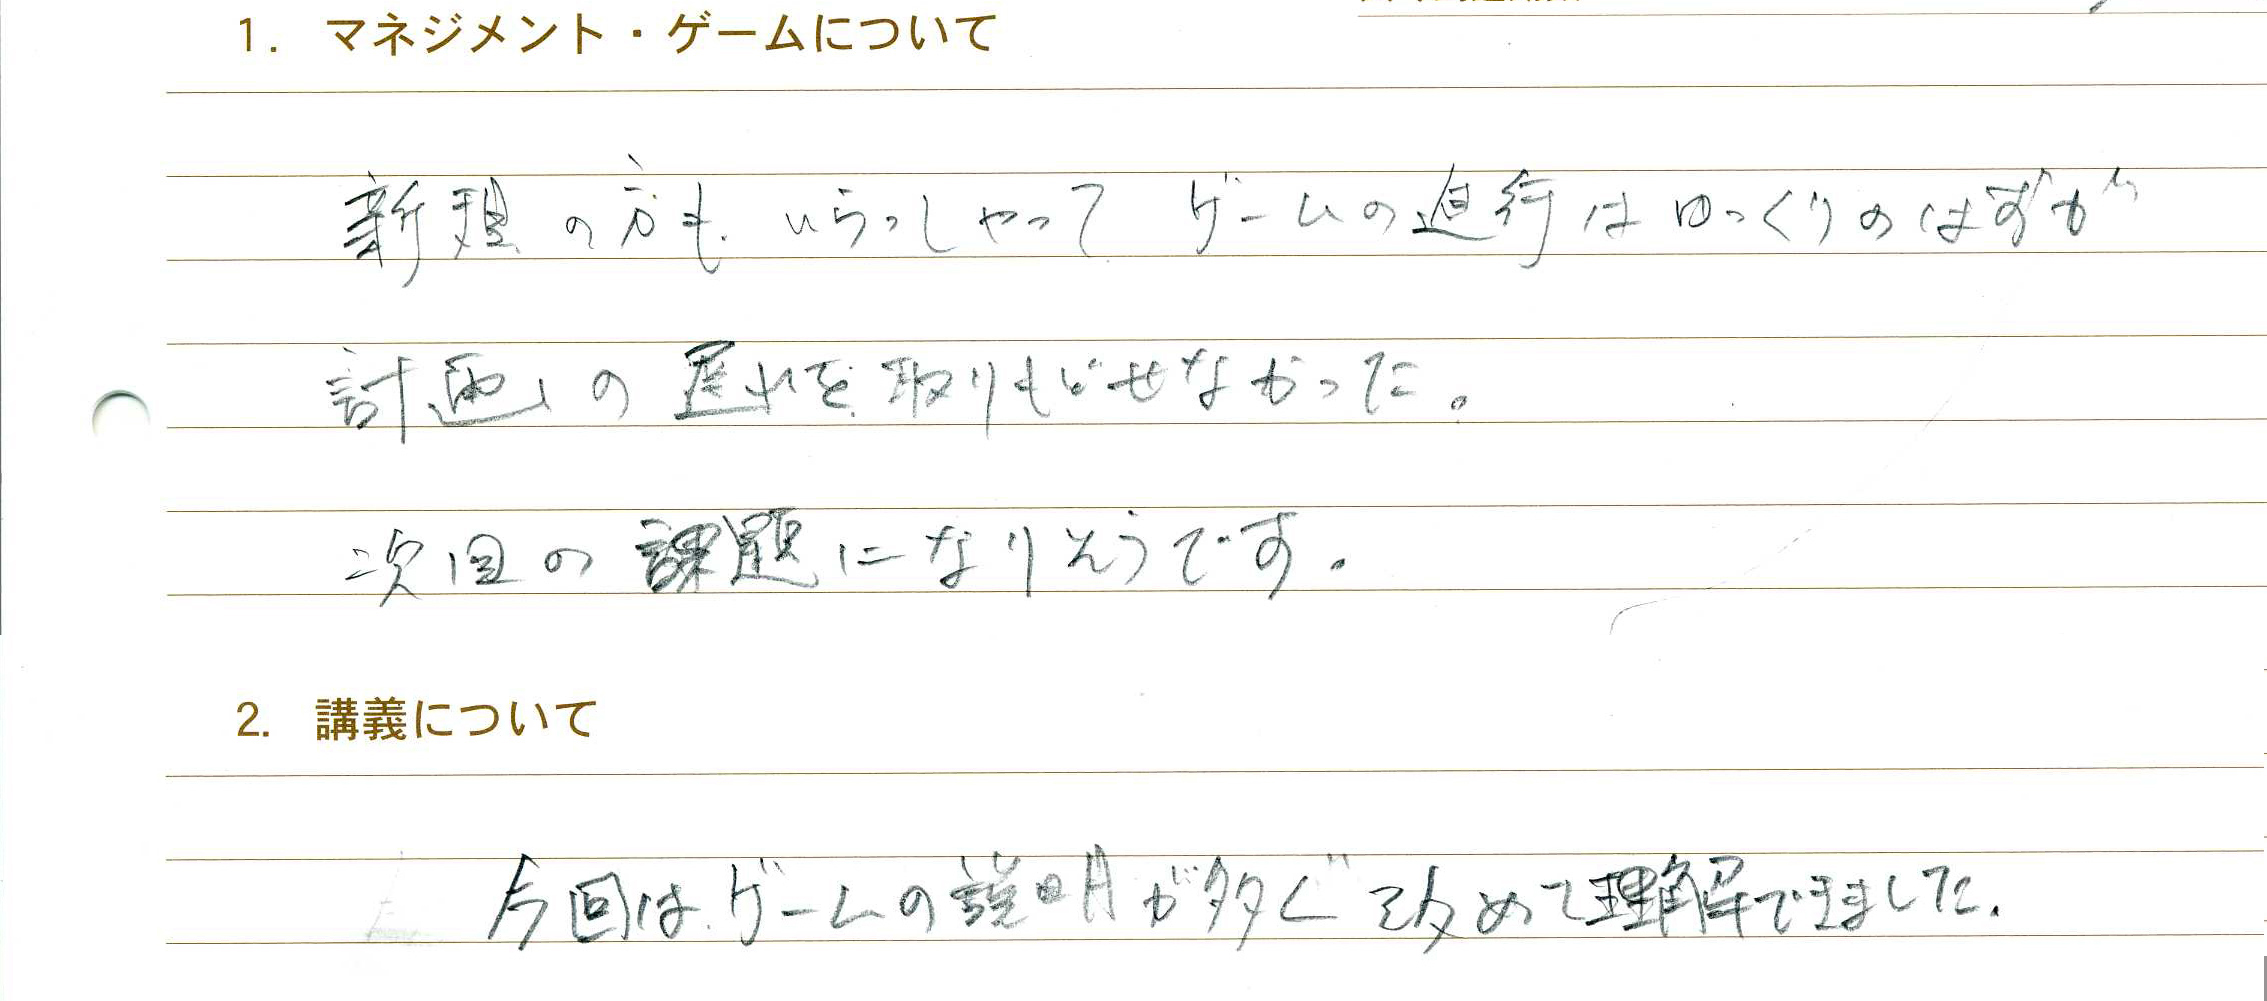 1. マネジメント・ゲームについて
新規の方も、いらっしゃって ゲームの進行はゆっくりのはずが
計画の遅れを取りもどせなかった。
次回の課題になりそうです。
2. 講義について
今回は、ゲームの説明が多く 改めて理解できました。